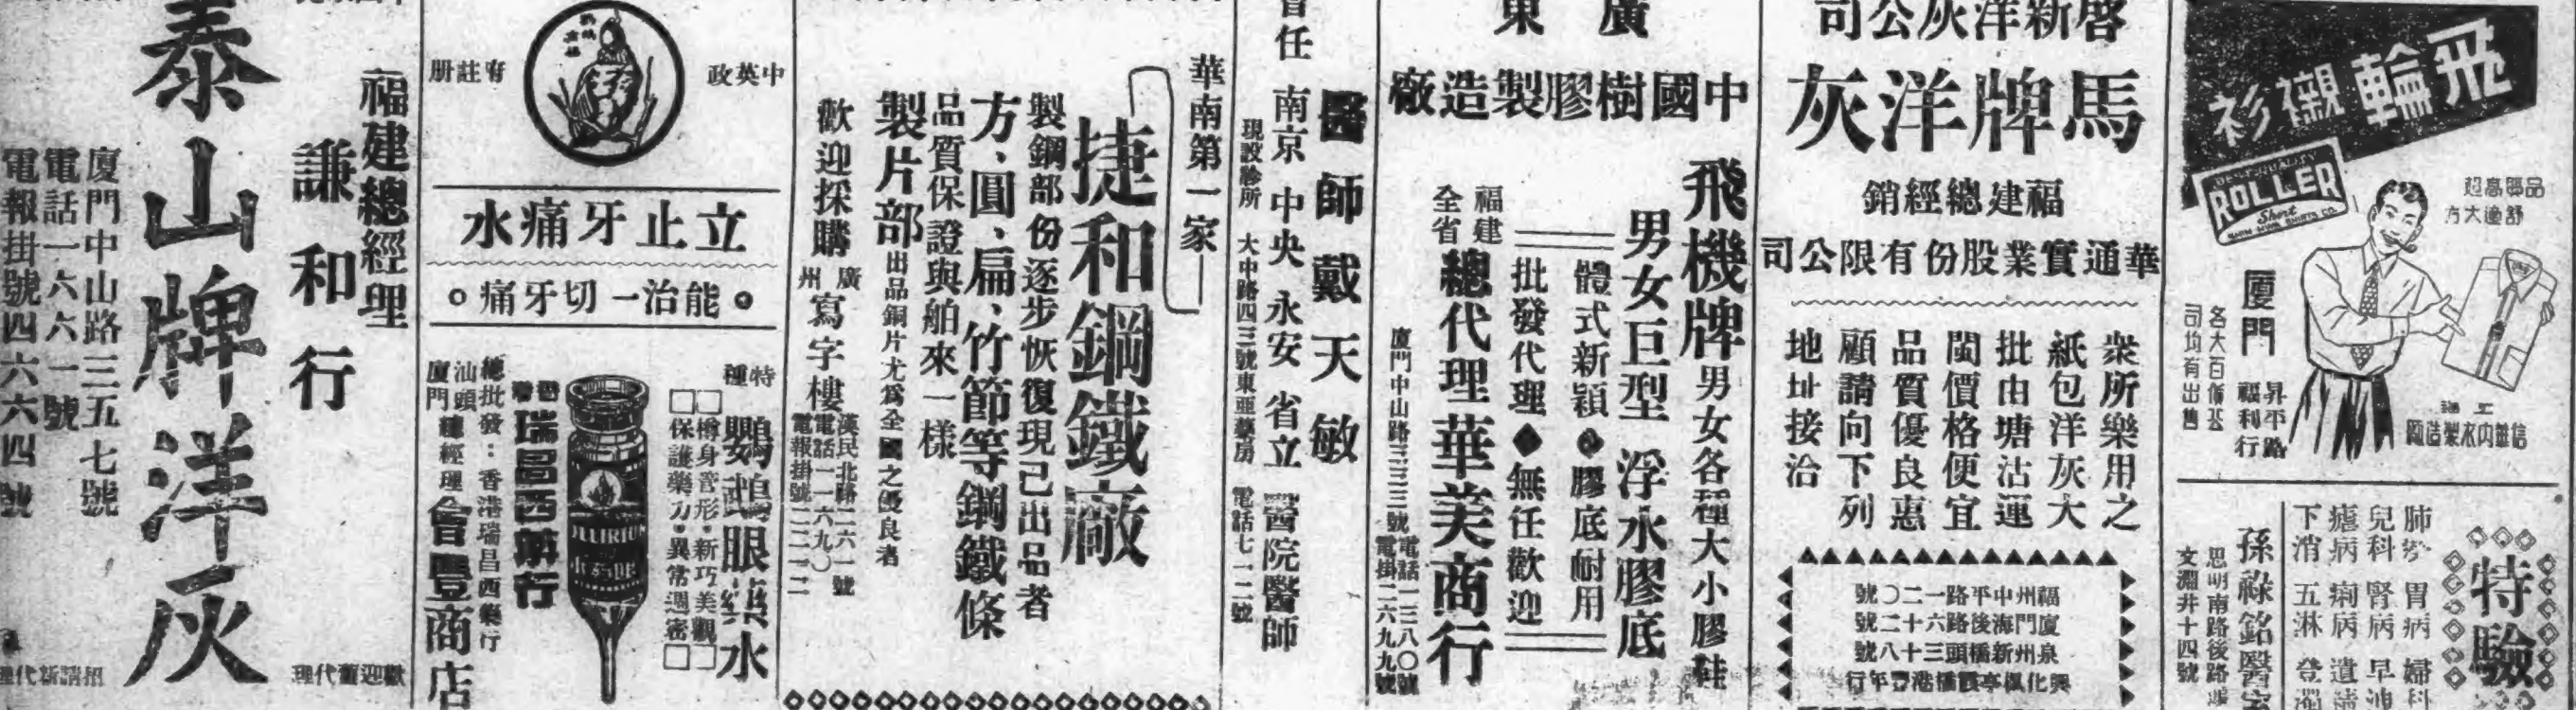 飛輪襯衫
ROLLER
Short
品質高超
舒適大方
廈門
昇平路
福利行
各大百貨公
司均有出售
上海
信誼內衣製造廠
特驗
肺癆 胃病 婦科
兒科 腎病 早洩
瘧病 痢病 遺精
下消 五淋 登溺
孫祿銘醫室
思明南路後路
文淵井十四號
啓新洋灰公司
馬牌洋灰
福建總經銷
華通實業股份有限公司
衆所樂用之
紙包洋灰大
批由塘沽運
閩價格便宜
品質優良惠
顧請向下列
地址接洽
福州中平路一二〇號
廈門海後路六十二號
泉州新橋頭三十八號
興化楓亭霞橋港豐年行
廣東
中國樹膠製造廠
飛機牌男女各種大小膠鞋
男女巨型 浮水膠底
體式新穎 膠底耐用
批發代理◆無任歡迎
福建全省總代理華美商行
廈門中山路三三三號
電話一三八〇號
電掛二六九九號
醫師戴天敏
曾任 南京 中央 永安 省立 醫院醫師
現設診所 大中路四三號東亞藥房 電話七一二號
華南第一家
捷和鋼鐵廠
製鋼部份逐步恢復現已出品者
方、圓、扁、竹節等鋼鐵條
品質保證與舶來一樣
製片部出品鋼片尤爲全國之優良者
歡迎採購
廣州寫字樓
漢民北路二六一號
電話一一六九〇
電報掛號二二一二
中英政府註册
立止牙痛水
能治一切牙痛
特種
鸚鵡眼藥水
□樽身管形·新巧美觀□
□保護藥力·異常週密□
ILLIRIUM
瑞昌西藥行
總批發：香港瑞昌西藥行
汕頭
廈門
總經理
會豐商店
福建總經理
謙和行
歡迎舊代理
泰山牌洋灰
招請新代理
廈門中山路三五七號
電話一六六一號
電報掛號四六六四號